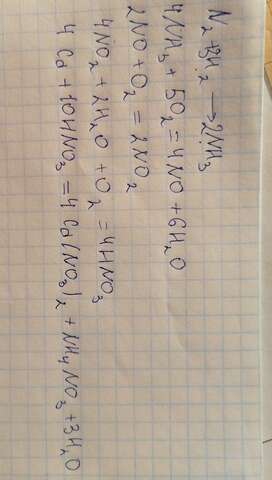 N₂ + 3H₂ → 2NH₃
4NH₃ + 5O₂ = 4NO + 6H₂O
2NO + O₂ = 2NO₂
4NO₂ + 2H₂O + O₂ = 4HNO₃
4Cd + 10HNO₃ = 4Cd(NO₃)₂ + NH₄NO₃ + 3H₂O